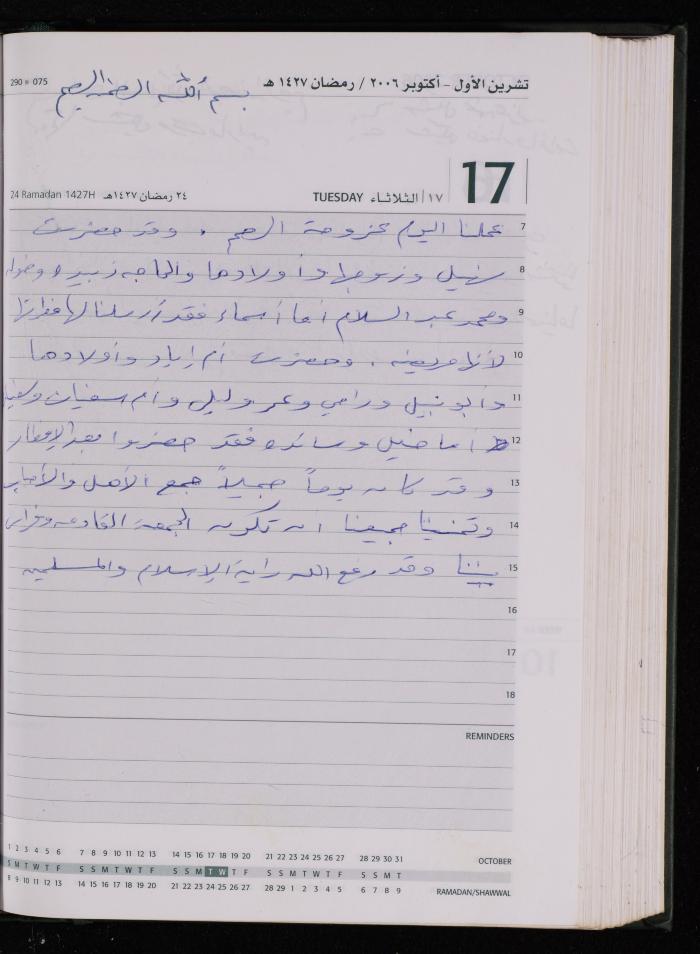 تشرين الأول - أكتوبر ٢٠٠٦ / رمضان ١٤٢٧ هـ
290 075
بسم الله الرحمن الرحيم
17
١٧ الثلاثاء TUESDAY
٢٤ رمضان ١٤٢٧هـ 24 Ramadan 1427H
7 عملنا اليوم عزومة الرحم . وقد حضرت
8 نهيل وزوجها وأولادها والحاجه زبيده
9 ومحمد عبد السلام أما أسماء فقد أرسلنا لها
10 لأنها مريضه . وحضرت أم إياد وأولادها
11 وأبو نبيل ورامي وعمر وليلى وأم سفيان
12 أما وسائده فقد حضروا بعد الإفطار
13 وقد كان يوماً جميلاً جمع الأهل والأحباب
14 وتمنينا جميعنا أن تكون الجمعة القادمه
15 بيننا وقد رفع الله راية الإسلام والمسلمين
16
17
18
REMINDERS
1 2 3 4 5 6 7 8 9 10 11 12 13 14 15 16 17 18 19 20 21 22 23 24 25 26 27 28 29 30 31 OCTOBER
S M T W T F S S M T W T F S S M T W T F S S M T W T F S S M T
8 9 10 11 12 13 14 15 16 17 18 19 20 21 22 23 24 25 26 27 28 29 1 2 3 4 5 6 7 8 9 RAMADAN/SHAWWAL